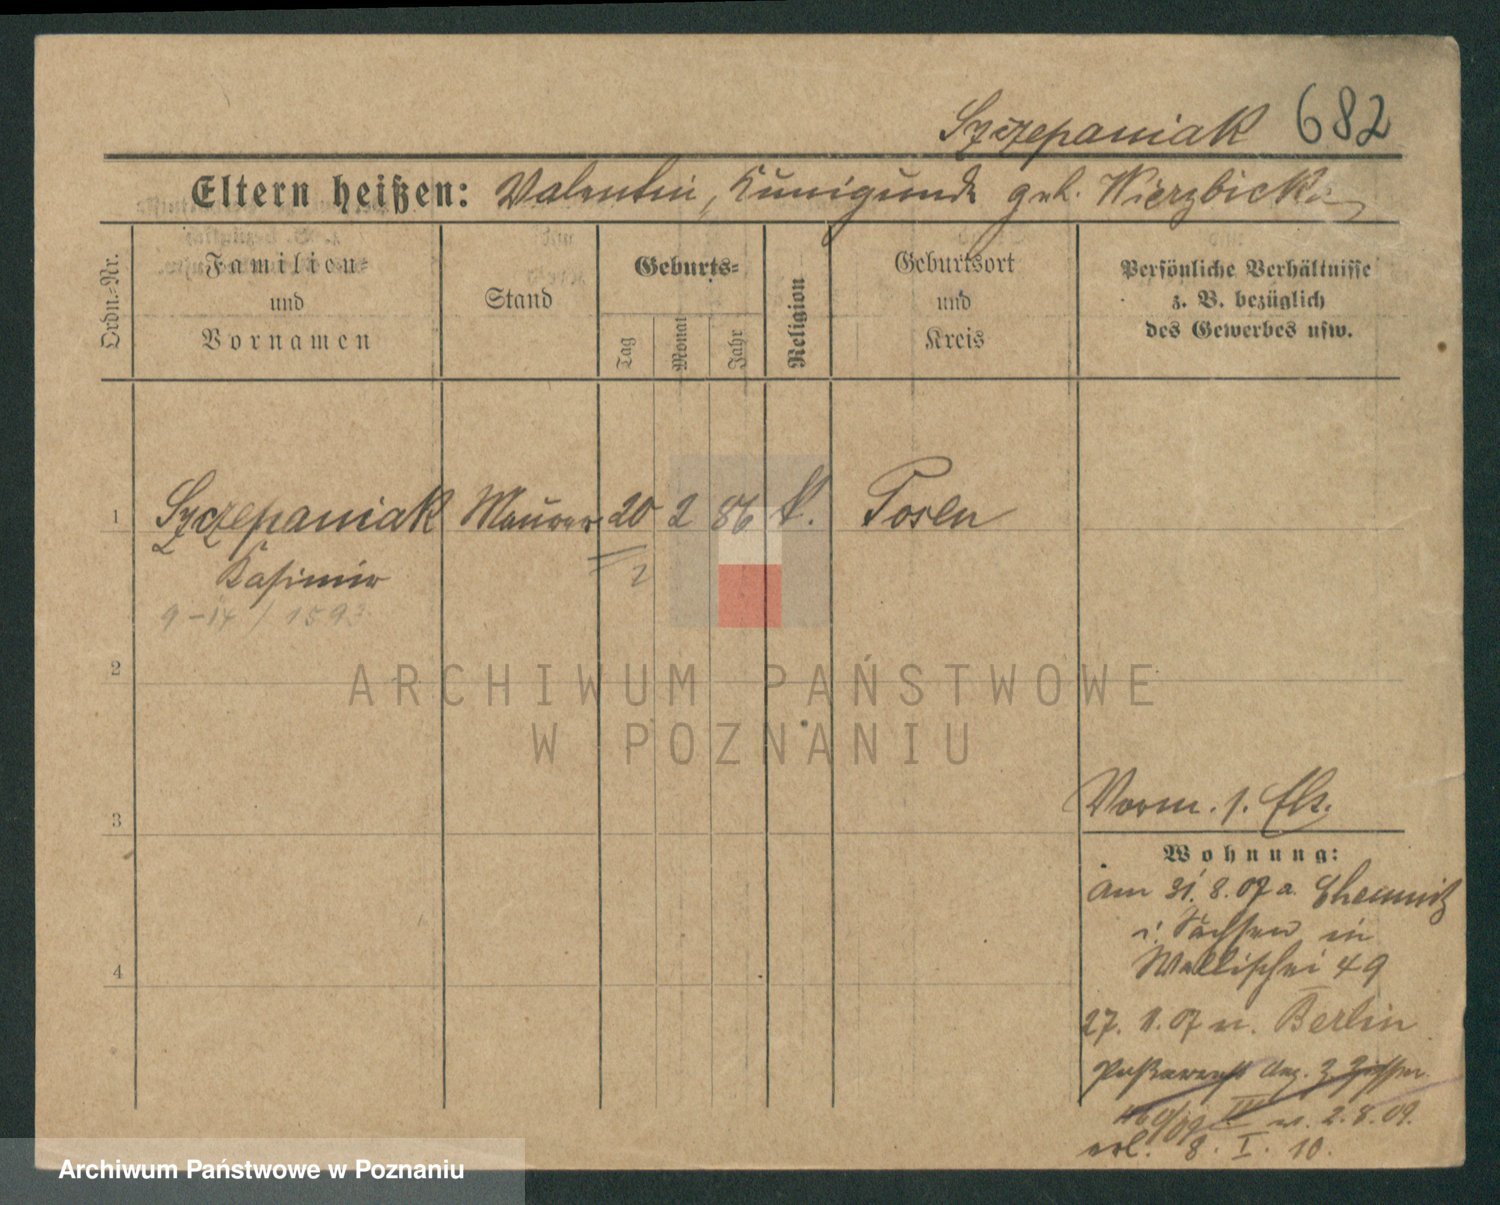 Szczepaniak 682
Eltern heißen: Valentin, Kunigunde geb. Wierzbicka
Ordn.-Nr.
Familien- und Vornamen
Stand
Geburts-
Tag
Monat
Jahr
Religion
Geburtsort und Kreis
Persönliche Verhältnisse
z. B. bezüglich
des Gewerbes usw.
1 Szczepaniak Maurer 20 2 86 k. Posen
Kasimir
2
9-14/1593
2
ARCHIWUM PAŃSTWOWE
W POZNANIU
3
Vorm. s. Elt.
Wohnung:
am 31.8.07 a. Chemnitz
i. Sachsen in
Wallischei 49
4
27. 11. 07 n. Berlin
v. 2.8.09.
erl. 8. I. 10.
Archiwum Państwowe w Poznaniu